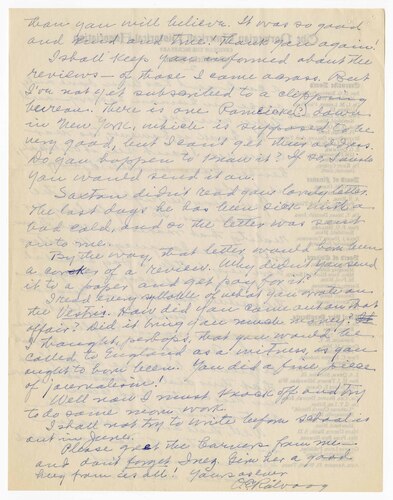 than you will believe. It was so good
and kind and true! Thank you again!
I shall keep you informed about the
reviews — of those I came across. But
I've not yet subscribed to a clipping
bureau. There is one down
in New York, which is supposed to be
very good, but I can't get this address.
Do you happen to know it? If so, I wish
you would send it on.
Saxton didn't read your lovely letter.
The last days he has been sick with a
bad cold, and so the letter was sent
on to me.
By the way, that letter would have been
a corker of a review. Why didn't you send
it to a paper and get pay for it?
I read every syllable of what you wrote on
the Vestris. How did you come out on that
affair? Did it bring you much money?
I thought, perhaps, that you would be
called to England as a witness, as you
ought to have been. You did a fine piece
of 'journalism'!
Well now I must knock off and try
to do some more work.
I shall not try to write before school is
out in June.
Please greet the from me —
and don't forget Inez. Give her a good
hug from us all! Yours as ever
Rölvaag